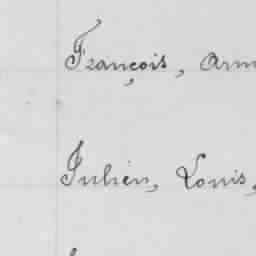 François, Arm
Julien, Louis,